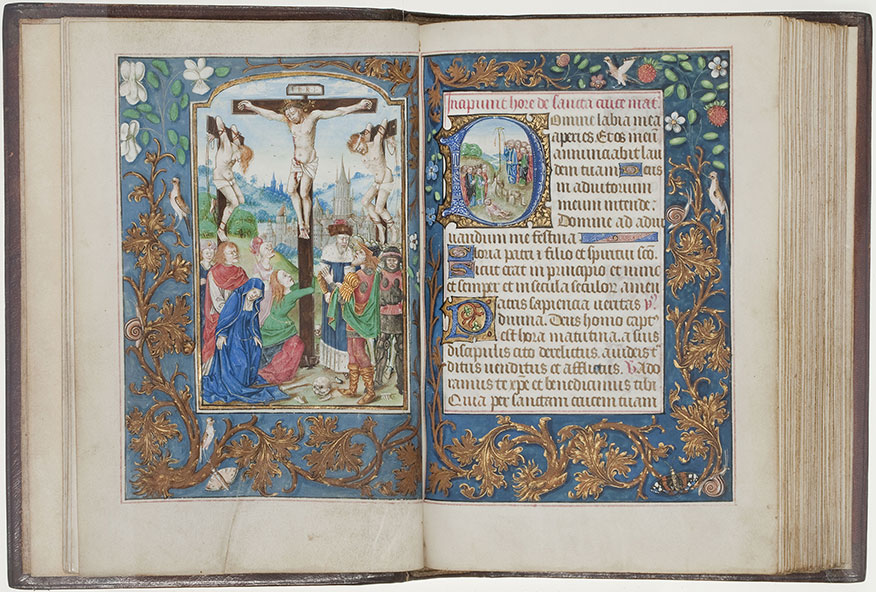 INRI
Incipiunt hore de sancta cruce mat.
Domine labia mea
aperies. Et os meum
annunciabit lau
dem tuam Deus
in adiutorium
meum intende.
Domine ad adiu
vandum me festina
Gloria patri et filio et spiritui sco
Sicut erat in principio et nunc
et semper et in secula seculor amen
Patris sapiencia veritas
divina. Deus homo capt
est hora matutina. a suis
discipulis cito derelictus. a iudeis t
ditus venditus et afflictus. Vado
ramus te xpe et benedicimus tibi
Quia per sanctam crucem tuam